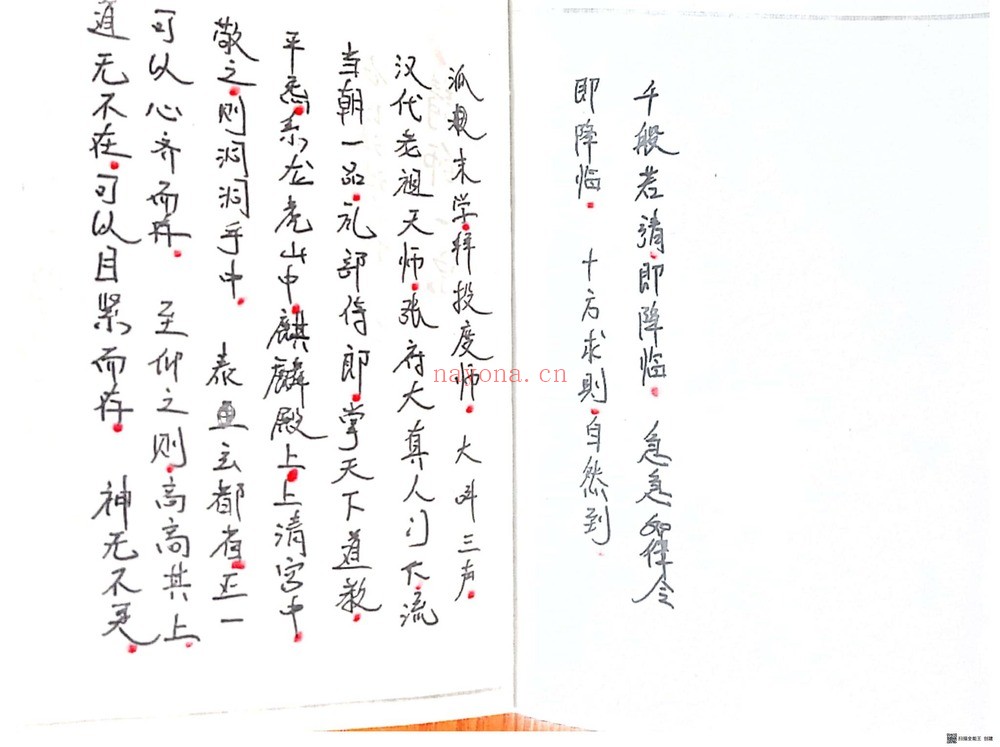 道无不在 可以目紧而存 神无不灵
可以心齐而存 至仰之则高高其上
敬之则洞洞乎中 泰玄都省正一
平系龙虎山中麒麟殿上上清宫中
当朝一品礼部侍郎掌天下道教
汉代老祖天师张府大真人门下流
派末学拜投度师 大叫三声
即降临 十方求则自然到
千般若请即降临 急急如律令
nayona.cn
扫描全能王 创建